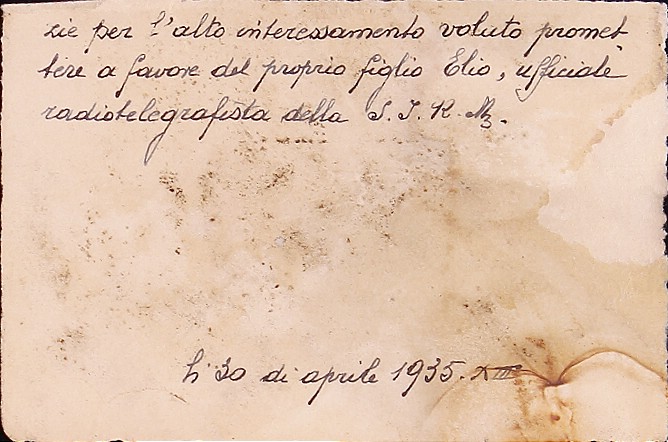 zie per l'alto interessamento voluto promet-
tere a favore del proprio figlio Elio, ufficiale
radiotelegrafista della S. I. R. M.
li 30 di aprile 1935. XIII